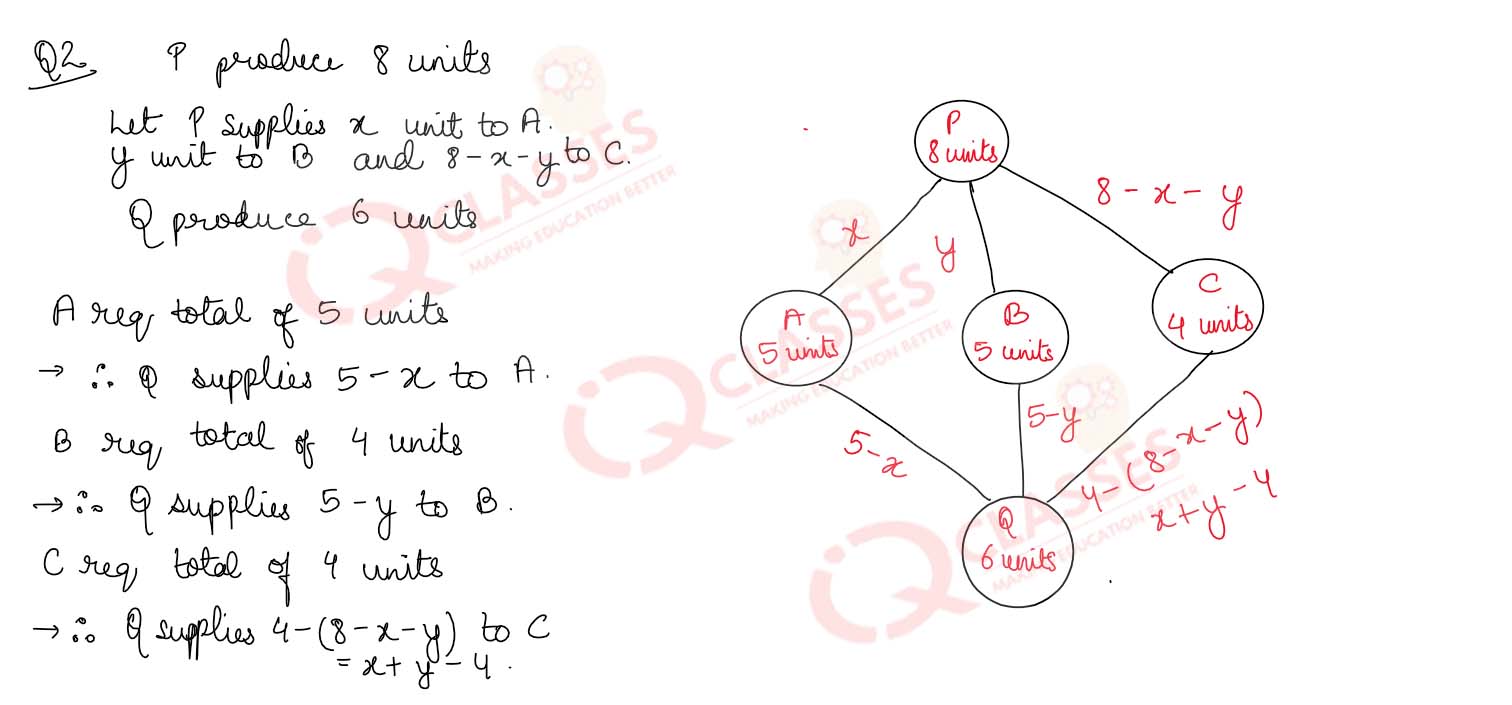 Q2 P produce 8 units
Let P supplies x unit to A.
y unit to B and 8-x-y to C.
Q produce 6 units
A req total of 5 units
→ ∴ Q supplies 5-x to A.
B req total of 4 units
→ ∴ Q supplies 5-y to B.
C req total of 4 units
→ ∴ Q supplies 4-(8-x-y) to C
= x+y-4.
P
8 units
x
y
8-x-y
A
5 units
B
5 units
C
4 units
5-x
5-y
4-(8-x-y)
x+y-4
Q
6 units
iQ CLASSES
MAKING EDUCATION BETTER
iQ CLASSES
MAKING EDUCATION BETTER
iQ CLASSES
MAKING EDUCATION BETTER